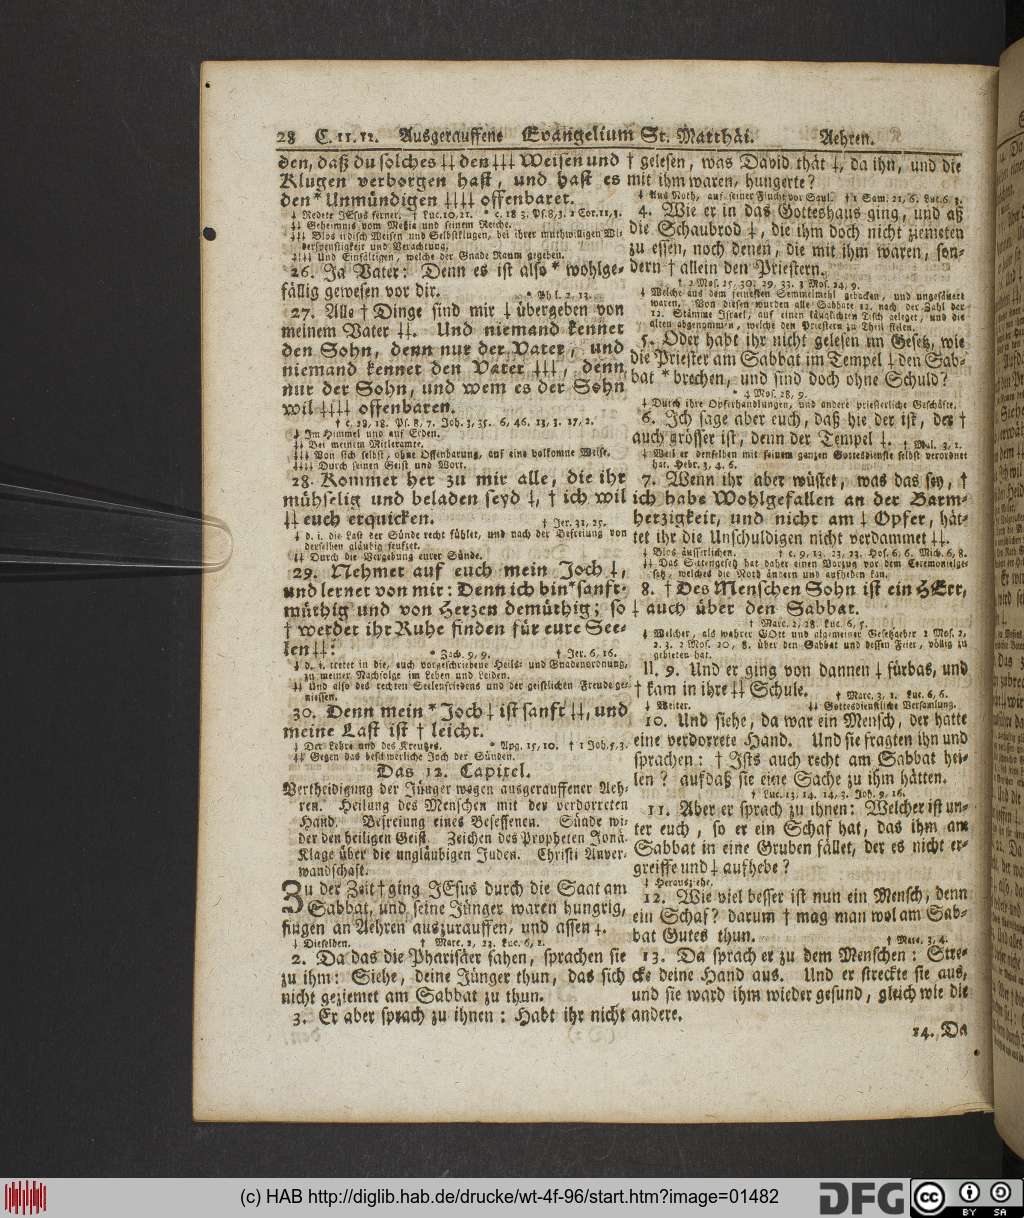 28 C. 11. 12. Ausgerauffene Evangelium St. Matthäi. Aehren.
den, daß du solches ⸸⸸ den ⸸⸸⸸ Weisen und
Klugen verborgen hast, und hast es
den * Unmündigen ⸸⸸⸸⸸ offenbaret.
⸸ Redete JEsus ferner. † Luc. 10, 21. * c. 18 3. Ps. 8, 3. 1 Cor. 11, 1.
⸸⸸ Geheimnis vom Meßia und seinem Reiche.
⸸⸸⸸ Blos irdisch Weisen und Selbstklugen, bei ihrer muthwilligen Wi-
derspenstigkeit und Verachtung,
⸸⸸⸸⸸ Und Einfältigen, welche der Gnade Raum gegeben.
26. Ja Vater: Denn es ist also * wohlge-
fällig gewesen vor dir. * Phil. 2, 13.
27. Alle † Dinge sind mir ⸸ übergeben von
meinem Vater ⸸⸸. Und niemand kennet
den Sohn, denn nur der Vater, und
niemand kennet den Vater ⸸⸸⸸, denn
nur der Sohn, und wem es der Sohn
wil ⸸⸸⸸⸸ offenbaren.
† c. 28, 18. Ps. 8, 7. Joh. 3, 35. 6, 46. 13, 3. 17, 2.
⸸ Im Himmel und auf Erden.
⸸⸸ Bei meinem Mitleramte.
⸸⸸⸸ Von sich selbst, ohne Offenbarung, auf eine volkomne Weise.
⸸⸸⸸⸸ Durch seinen Geist und Wort.
28. Kommet her zu mir alle, die ihr
mühselig und beladen seyd ⸸, † ich wil
⸸⸸ euch erquicken. † Jer. 31, 25.
⸸ d. i. die Last der Sünde recht fühlet, und nach der Befreiung von
derselben gläubig seufzet.
⸸⸸ Durch die Vergebung eurer Sünde.
29. Nehmet auf euch mein Joch ⸸,
und lernet von mir: Denn ich bin * sanft-
müthig und von Herzen demüthig; so
† werdet ihr Ruhe finden für eure See-
len ⸸⸸: * Zach. 9, 9. † Jer. 6, 16.
⸸ d. i. tretet in die, euch vorgeschriebene Heils- und Gnadenordnung,
zu meiner Nachfolge im Leben und Leiden.
⸸⸸ Und also des rechten Seelenfriedens und der geistlichen Freude ge-
niessen.
30. Denn mein * Joch ⸸ ist sanft ⸸⸸, und
meine Last ist † leicht.
⸸ Der Lehre und des Kreuzes. * Apg. 15, 10. † 1 Joh. 5, 3.
⸸⸸ Gegen das beschwerliche Joch der Sünden.
Das 12. Capitel.
Vertheidigung der Jünger wegen ausgerauffener Aeh-
ren. Heilung des Menschen mit der verdorreten
Hand. Befreiung eines Besessenen. Sünde wi-
der den heiligen Geist. Zeichen des Propheten Jonä.
Klage über die ungläubigen Juden. Christi Anver-
wandschaft.
Zu der Zeit † ging JEsus durch die Saat am
Sabbat, und seine Jünger waren hungrig,
fingen an Aehren auszurauffen, und assen ⸸.
⸸ Dieselben. † Marc. 2, 23. Luc. 6, 1.
2. Da das die Pharisäer sahen, sprachen sie
zu ihm: Siehe, deine Jünger thun, das sich
nicht geziemet am Sabbat zu thun.
3. Er aber sprach zu ihnen: Habt ihr nicht
† gelesen, was David thät ⸸, da ihn, und die
mit ihm waren, hungerte?
⸸ Aus Noth, auf seiner Flucht vor Saul. † 1 Sam. 21, 6. Luc. 6, 3.
4. Wie er in das Gotteshaus ging, und aß
die Schaubrod ⸸, die ihm doch nicht ziemeten
zu essen, noch denen, die mit ihm waren, son-
dern † allein den Priestern.
† 2 Mos. 25, 30. 29, 33. 3 Mos. 24, 9.
⸸ Welche aus dem feinesten Semmelmehl gebacken, und ungesäuert
waren. Von diesen wurden alle Sabbate 12. nach der Zahl der
12. Stämme Israel, auf einen täuglichten Tisch geleget, und die
alten abgenommen, welche den Priestern zu Theil fielen.
5. Oder habt ihr nicht gelesen im Gesetz, wie
die Priester am Sabbat im Tempel ⸸ den Sab-
bat * brechen, und sind doch ohne Schuld?
* 4 Mos. 28, 9.
⸸ Durch ihre Opferhandlungen, und andere priesterliche Geschäfte.
6. Ich sage aber euch, daß hie der ist, der †
auch grösser ist, denn der Tempel ⸸. † Mal. 3, 1.
⸸ Weil er denselben mit seinem ganzen Gottesdienste selbst verordnet
hat. Hebr. 3, 4. 6.
7. Wenn ihr aber wüstet, was das sey, †
ich habe Wohlgefallen an der Barm-
herzigkeit, und nicht am ⸸ Opfer, hät-
tet ihr die Unschuldigen nicht verdammet ⸸⸸.
⸸ Blos äusserlichen. † c. 9, 13. 23, 23. Hos. 6, 6. Mich. 6, 8.
⸸⸸ Das Sittengesetz hat daher einen Vorzug vor dem Ceremonielge-
setz, welches die Noth ändern und aufheben kan.
8. † Des Menschen Sohn ist ein HErr,
⸸ auch über den Sabbat.
† Marc. 2, 28. Luc. 6, 5.
⸸ Welcher, als wahrer GOtt und algemeiner Gesetzgeber 2 Mos. 2,
2. 3. 2 Mos. 20, 8. über den Sabbat und dessen Feier, völlig zu
gebieten hat.
II. 9. Und er ging von dannen ⸸ fürbas, und
† kam in ihre ⸸⸸ Schule. † Marc. 3, 1. Luc. 6, 6.
⸸ Weiter. ⸸⸸ Gottesdienstliche Versamlung.
10. Und siehe, da war ein Mensch, der hatte
eine verdorrete Hand. Und sie fragten ihn und
sprachen: † Ists auch recht am Sabbat hei-
len? aufdaß sie eine Sache zu ihm hätten.
† Luc. 13, 14. 14, 3. Joh. 9, 16.
11. Aber er sprach zu ihnen: Welcher ist un-
ter euch, so er ein Schaf hat, das ihm am
Sabbat in eine Gruben fället, der es nicht er-
greiffe und ⸸ aufhebe?
⸸ Herausziehe.
12. Wie viel besser ist nun ein Mensch, denn
ein Schaf? darum † mag man wol am Sab-
bat Gutes thun. † Marc. 3, 4.
13. Da sprach er zu dem Menschen: Stre-
cke deine Hand aus. Und er streckte sie aus,
und sie ward ihm wieder gesund, gleich wie die
andere.
14. Da
(c) HAB http://diglib.hab.de/drucke/wt-4f-96/start.htm?image=01482
DFG
cc BY SA